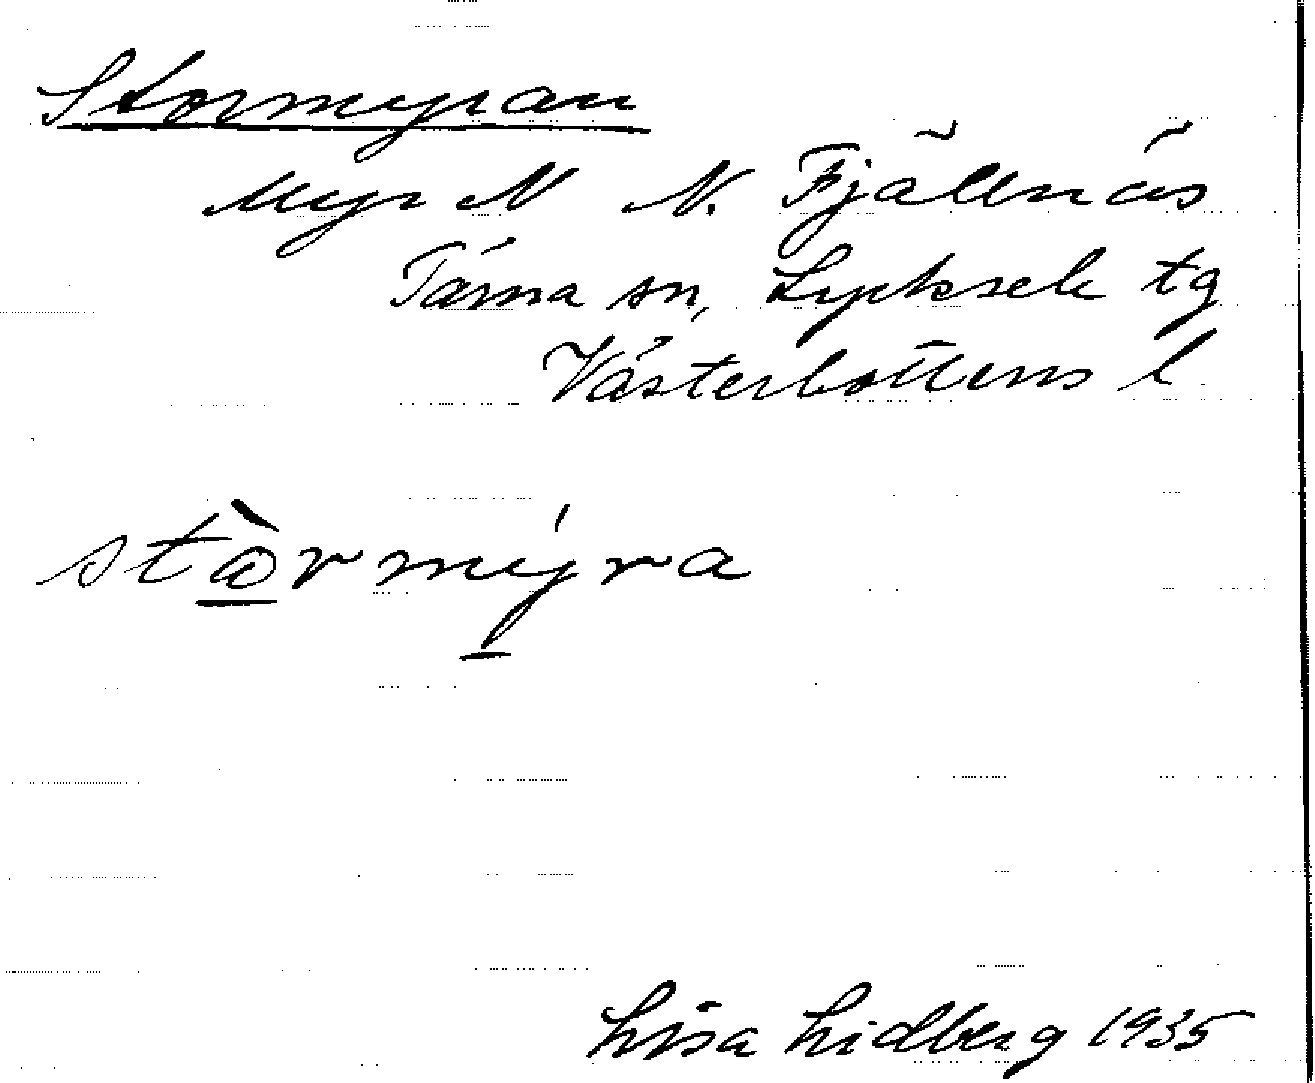 Stormyran
Myr N N. Fjällnäs
Tärna sn, Lycksele tg
Västerbottens l
stòrmýra
Lisa Lidberg 1935